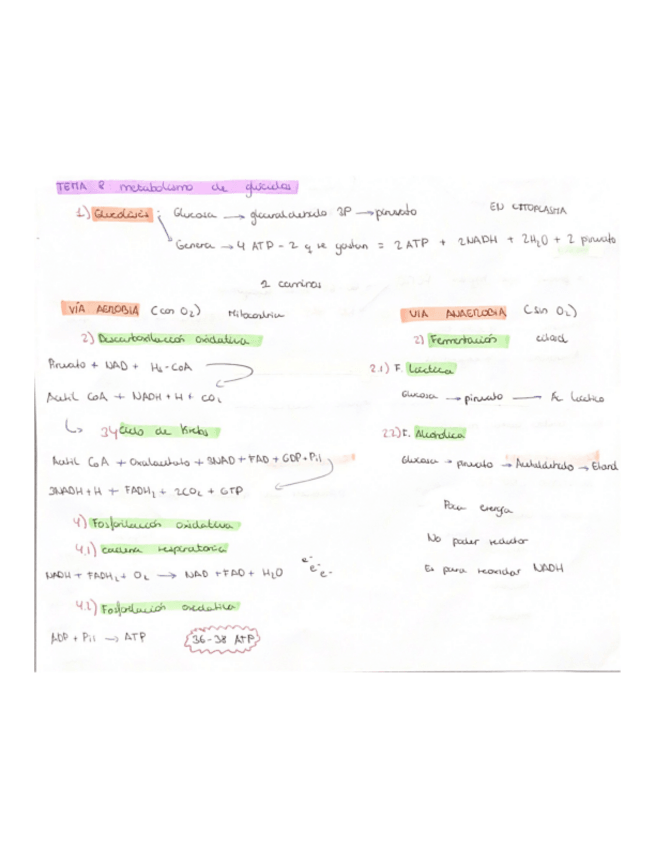 TEMA 8 metabolismo de glúcidos
1) Glucólisis: Glucosa → gliceraldehido 3P → piruvato EN CITOPLASMA
Genera → 4 ATP - 2 q se gastan = 2 ATP + 2NADH + 2H2O + 2 piruvato
2 caminos
VÍA AEROBIA (con O2) Mitocondria
2) Descarboxilación oxidativa
Piruvato + NAD + Hs-CoA
Acetil CoA + NADH + H + CO2
3) Ciclo de Krebs
Acetil CoA + Oxalacetato + 3NAD + FAD + GDP + Pi
3NADH + H + FADH2 + 2CO2 + GTP
4) Fosforilación oxidativa
4.1) cadena respiratoria
NADH + FADH2 + O2 → NAD + FAD + H2O e- e- e-
4.2) Fosforilación oxidativa
ADP + Pi → ATP 36-38 ATP
VIA ANAEROBIA (sin O2)
2) Fermentación
2.1) F. Láctica
Glucosa → piruvato → Ac láctico
2.2) F. Alcohólica
Glucosa → piruvato → Acetaldehido → Etanol
Poca energía
No poder reductor
Es para reoxidar NADH